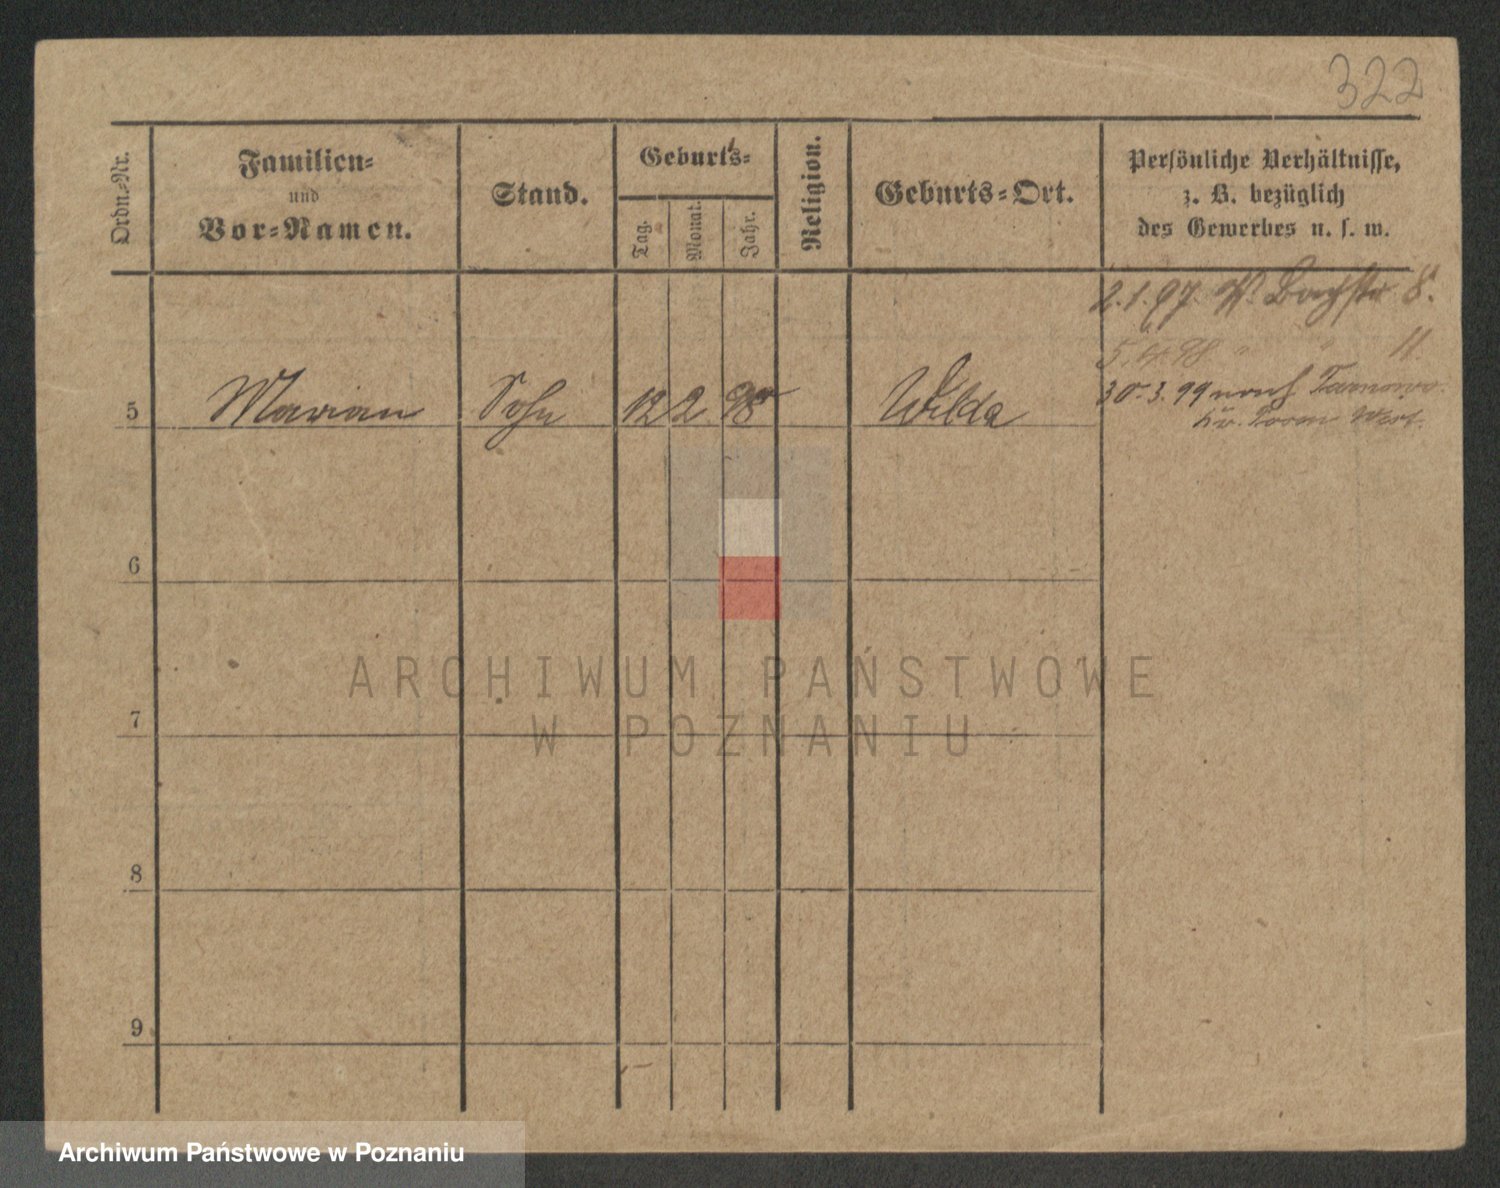 322
Ordn.-Nr.
Familien-
und
Vor-Namen.
Stand.
Geburts-
Tag.
Monat.
Jahr.
Religion.
Geburts-Ort.
Persönliche Verhältnisse,
z. B. bezüglich
des Gewerbes u. s. w.
2.1.97. W. Bachstr 8.
5.4.98 " " 11.
5 Marian Sohn 12 2 98 Wilda
30.3.99 nach Tarnowo
Kr. Posen West.
6
7
8
9
ARCHIWUM PAŃSTWOWE
W POZNANIU
Archiwum Państwowe w Poznaniu